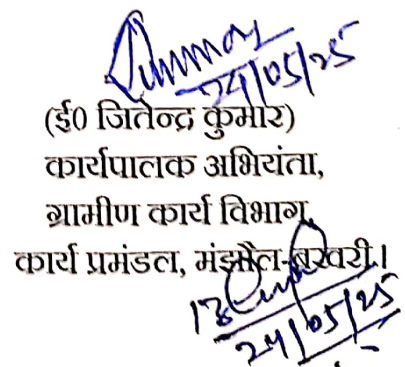 24/05/25
(ई0 जितेन्द्र कुमार)
कार्यपालक अभियंता,
ग्रामीण कार्य विभाग,
कार्य प्रमंडल, मंझौल-बखरी।
24/05/25